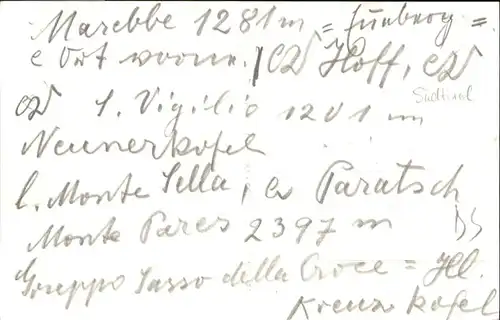 Marebbe 1281 m = Enneberg =
e Ort vorne. / CD Hoff, CD
CD S. Vigilio 1201 m
Südtirol
Neunerkofel
l. Monte Sella, Paratsch
Monte Pares 2397 m
DS
Gruppo Sasso della Croce = Hl.
Kreuzkofel